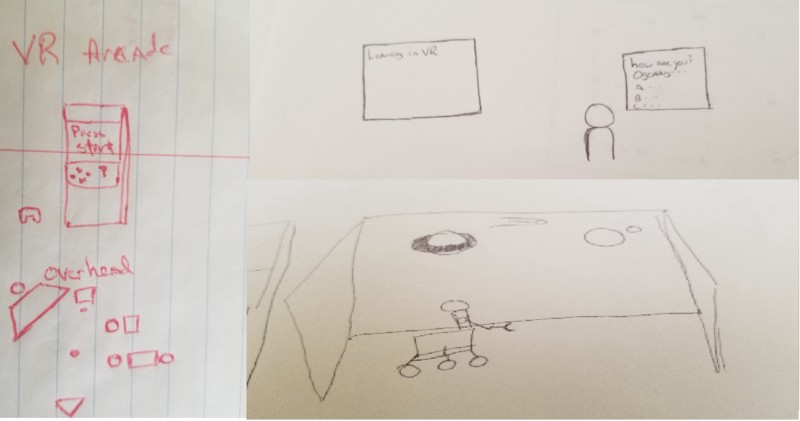 VR Arcade
Press
start
overhead
Learning in VR
how are you?
A. ...
B. ...
C. ...